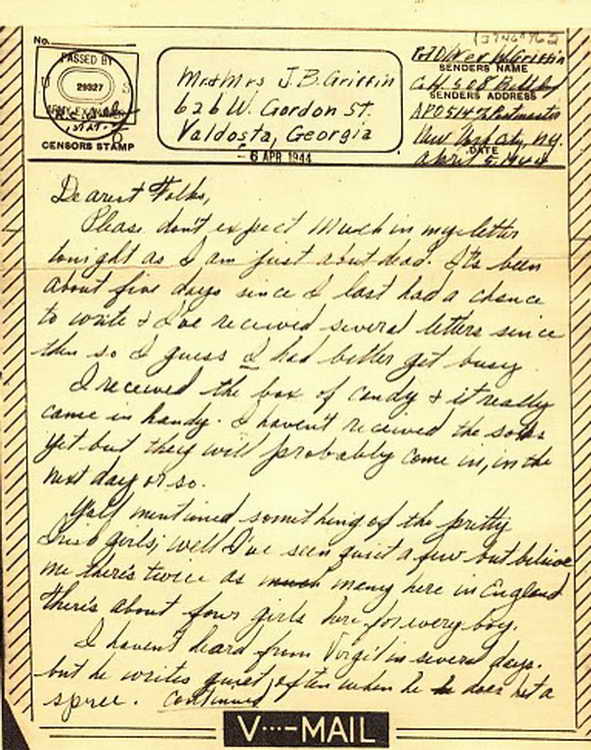 No.
PASSED BY
U S
29327
ARMY EXAMINER
CENSORS STAMP
Mr & Mrs J.B. Griffin
626 W. Gordon St.
Valdosta, Georgia
- 6 APR 1944
W Griffin
SENDERS NAME
Co. H. 508
SENDERS ADDRESS
APO 514 % Postmaster
New York City, N.Y.
DATE
April 5, 1944
Dearest Folks,
Please don't expect much in my letter
tonight as I am just about dead. It's been
about five days since I last had a chance
to write & I've received several letters since
then so I guess I had better get busy.
I received the box of candy & it really
came in handy. I haven't received the socks
yet but they will probably come in, in the
next day or so.
Yall mentioned something of the pretty
Irish girls; well I've seen quiet a few but believe
me there's twice as many here in England
there's about four girls here for every boy.
I haven't heard from Virgil in several days.
but he writes quiet often when he does has a
spree. Continued
V···—MAIL